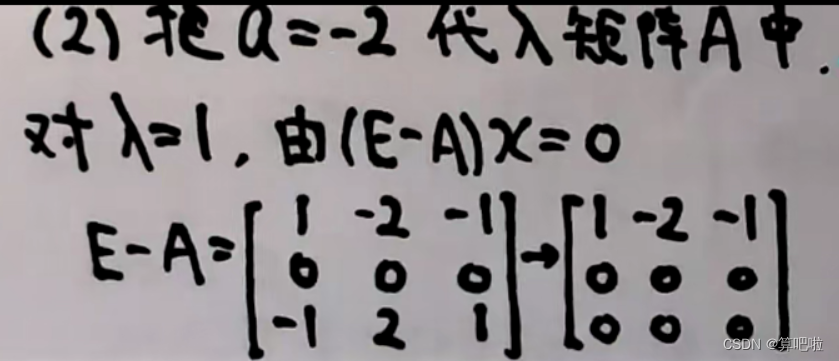 (2) 把 a=-2 代入矩阵A中.
对 λ=1, 由(E-A)x=0
E-A=[1 -2 -1; 0 0 0; -1 2 1]→[1 -2 -1; 0 0 0; 0 0 0]
CSDN @算吧啦